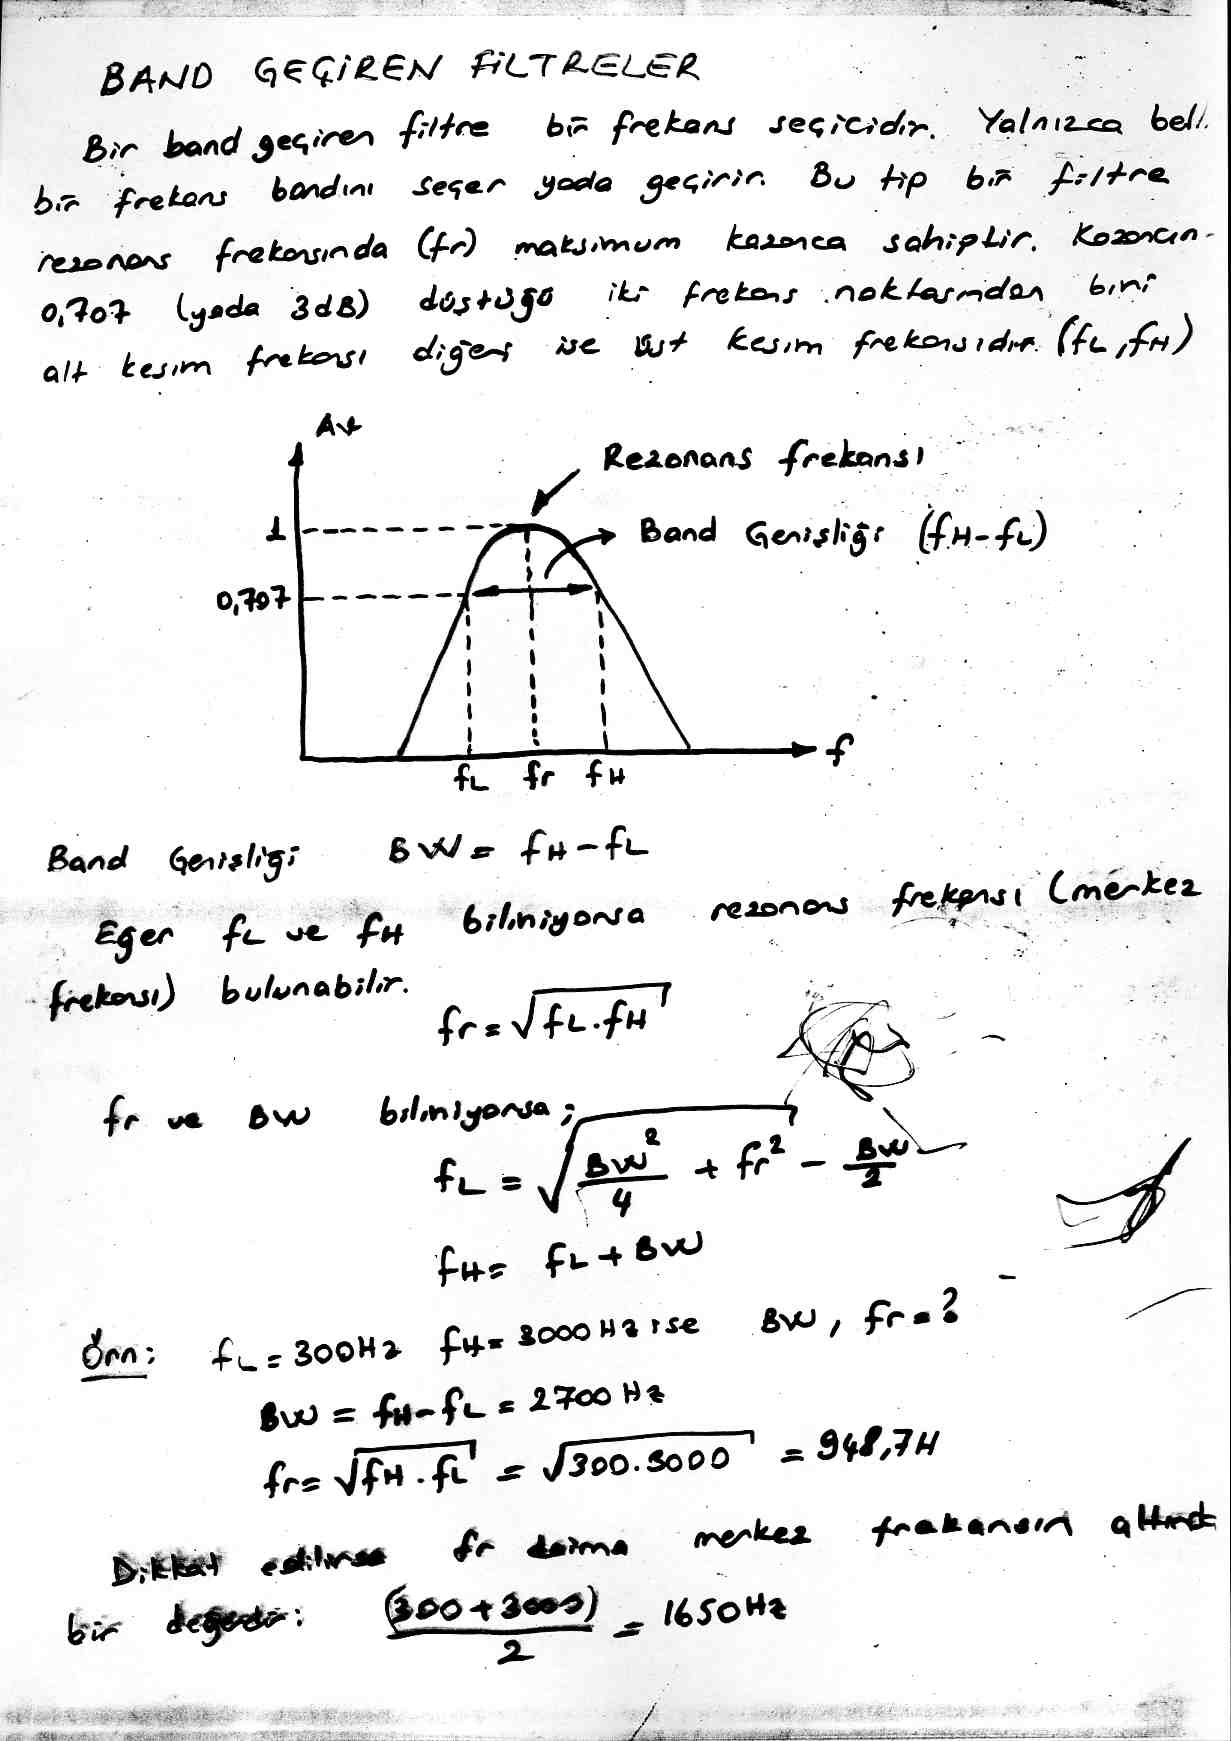 BAND GEÇİREN FİLTRELER
Bir band geçiren filtre bir frekans seçicidir. Yalnızca belli
bir frekans bandını seçer yada geçirir. Bu tip bir filtre
rezonans frekansında (fr) maksimum kazanca sahiptir. Kazancın
0,707 (yada 3dB) düştüğü iki frekans noktasından biri
alt kesim frekansı diğeri ise üst kesim frekansıdır. (fL, fH)
Av
Rezonans frekansı
1
Band Genişliği (fH-fL)
0,707
f
fL fr fH
Band Genişliği BW = fH - fL
Eğer fL ve fH biliniyorsa rezonans frekansı (merkez
frekansı) bulunabilir.
fr = √fL.fH
fr ve BW biliniyorsa;
fL = √BW²/4 + fr² - BW/2
fH = fL + BW
Örn: fL = 300Hz fH = 3000Hz ise BW, fr = ?
BW = fH - fL = 2700 Hz
fr = √fH.fL = √300.3000 = 948,7H
Dikkat edilirse fr daima merkez frakansın altında
bir değerdir: (300 + 3000)/2 = 1650Hz